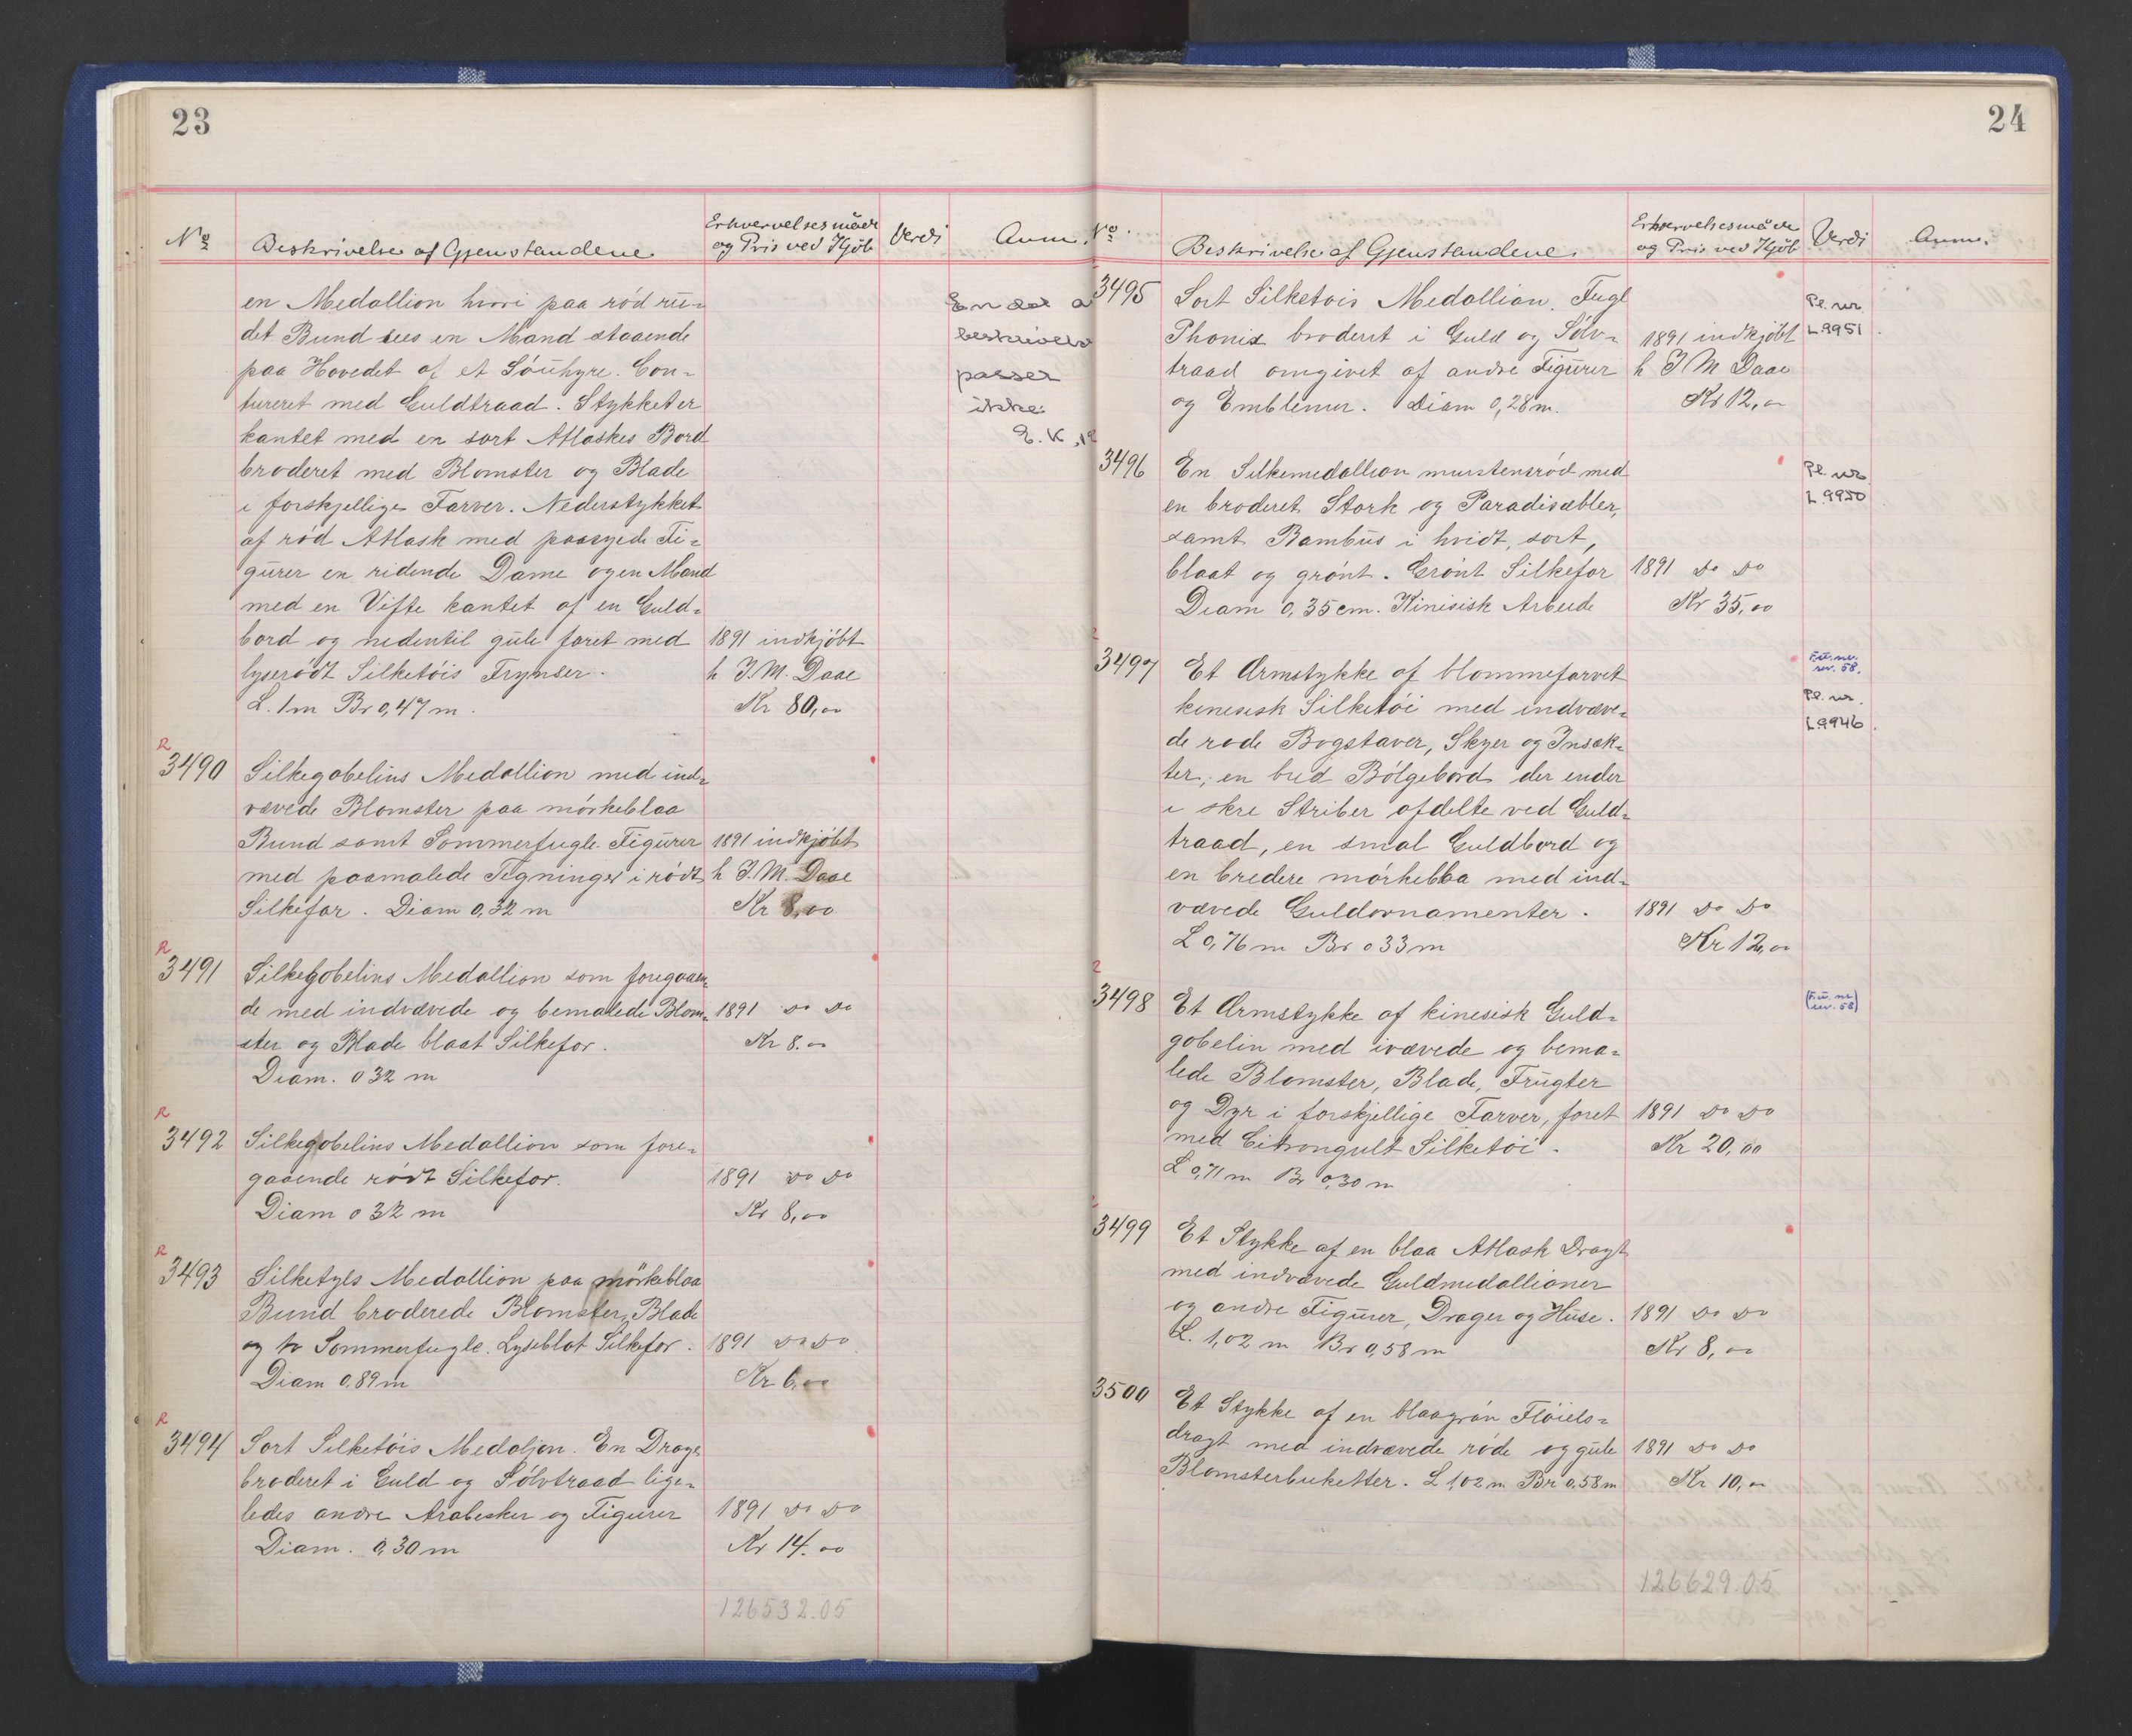 23
No
Beskrivelse af Gjenstandene
Erhvervelsesmåde
og Pris ved Kjöb
Verdi
Anm.
en Medallion hvori paa rød ru-
det Bund sees en Mand staaende
paa Hovedet af et Söuhyre. Con-
tureret med Guldtraad. Stykket er
kantet med en sort Atlaskes Bord
broderet med Blomster og Blade
i forskjellige Farver. Nederstykket
af rød Atlask med paasyede Fi-
gürer en ridende Dame og en Mand
med en Vifte kantet af en Guld-
bord og nedentil gule foret med
lyserødt Silketöis Frynser.
L. 1 m Br 0,47 m.
1891 indkjöbt
h J.M. Daae
Kr 80,00
En del a
beskrivels
passer
ikke.
E.K.
R
3490
Silkegobelins Medallion med ind-
vævede Blomster paa mörkeblaa
Bund samt Sommerfugle. Figürer
med paamalede Tegninger i rödt
Silkefor. Diam 0,32 m
1891 indkjöbt
h J.M. Daae
Kr 8,00
R
3491
Silkegobelins Medallion som foregaaen-
de med indvævede og bemalede Blom-
ster og Blade blaat Silkefor.
Diam. 0 32 m
1891 Do Do
Kr 8.00
R
3492
Silkegobelins Medallion som fore-
gaaende rödt Silkefor.
Diam 0 32 m
1891 Do Do
Kr 8,00
R
3493
Silketyls Medallion paa mörkeblaa
Bund broderede Blomster, Blade
og to Sommerfugle. Lyseblot Silkefor.
Diam 0.89 m
1891 Do Do
Kr 6,00
R
3494
Sort Silketöis Medaljon. En Drage
broderet i Guld og Sölvtraad lige-
ledes andre Arabesker og Figurer
Diam. 0,30 m
1891 Do Do
Kr 14.00
126532.05
24
No
Beskrivelse af Gjenstandene.
Erhvervelsesmåde
og Pris ved Kjöb
Verdi
Anm.
3495
Sort Silketöis Medallion. Fugl
Phonix broderet i Guld og Sölv-
traad omgivet af andre Figürer
og Emblemer. Diam 0,28 m.
1891 indkjöbt
h J M Daae
Kr 12,00
Pl. nr.
L.9951.
3496
En Silkemedallion murstensrød med
en broderet Stork og Paradisæbler,
samt Bambüs i hvidt, sort,
blaat og grönt. Grönt Silkefor
Diam 0,35 cm. Kinisisk Arbeide
1891 Do Do
Kr 35,00
Pl. nr
L.9950
3497
Et Ærmstykke af blommefarvet
kinesisk Silketöi med indvæve-
de rode Bogstaver, Skyer og Insek-
ter, en bred Bölgebord der ender
i skre Striber afdelte ved Guld-
traad, en smal Guldbord og
en bredere mörkebba med ind-
vævede Guldornamenter.
L 0,76 m Br 0 33 m
1891 Do Do
Kr 12,00
rev. 58.
Pl. nr.
L.9946.
3498
Et Ærmstykke af kinesisk Guld-
gobelin med ivævede og bema-
lede Blomster, Blade, Frügter
og Dyr i forskjellige Farver, foret
med Citrongult Silketöi.
L 0,71 m Br 0,30 m
1891 Do Do
Kr 20,00
rev. 58)
3499
Et Stykke af en blaa Atlask Dragt
med indvævede Guldmedallioner
og andre Figürer, Drager og Hüse.
L. 1,02 m Br 0,58 m
1891 Do Do
Kr 8,00
3500
Et Stykke af en blaagrön Flöiels-
dragt med indvævede röde og gule
Blomsterbuketter. L 1,02 m Br 0,58 m
1891 Do Do
Kr 10,00
126629.05